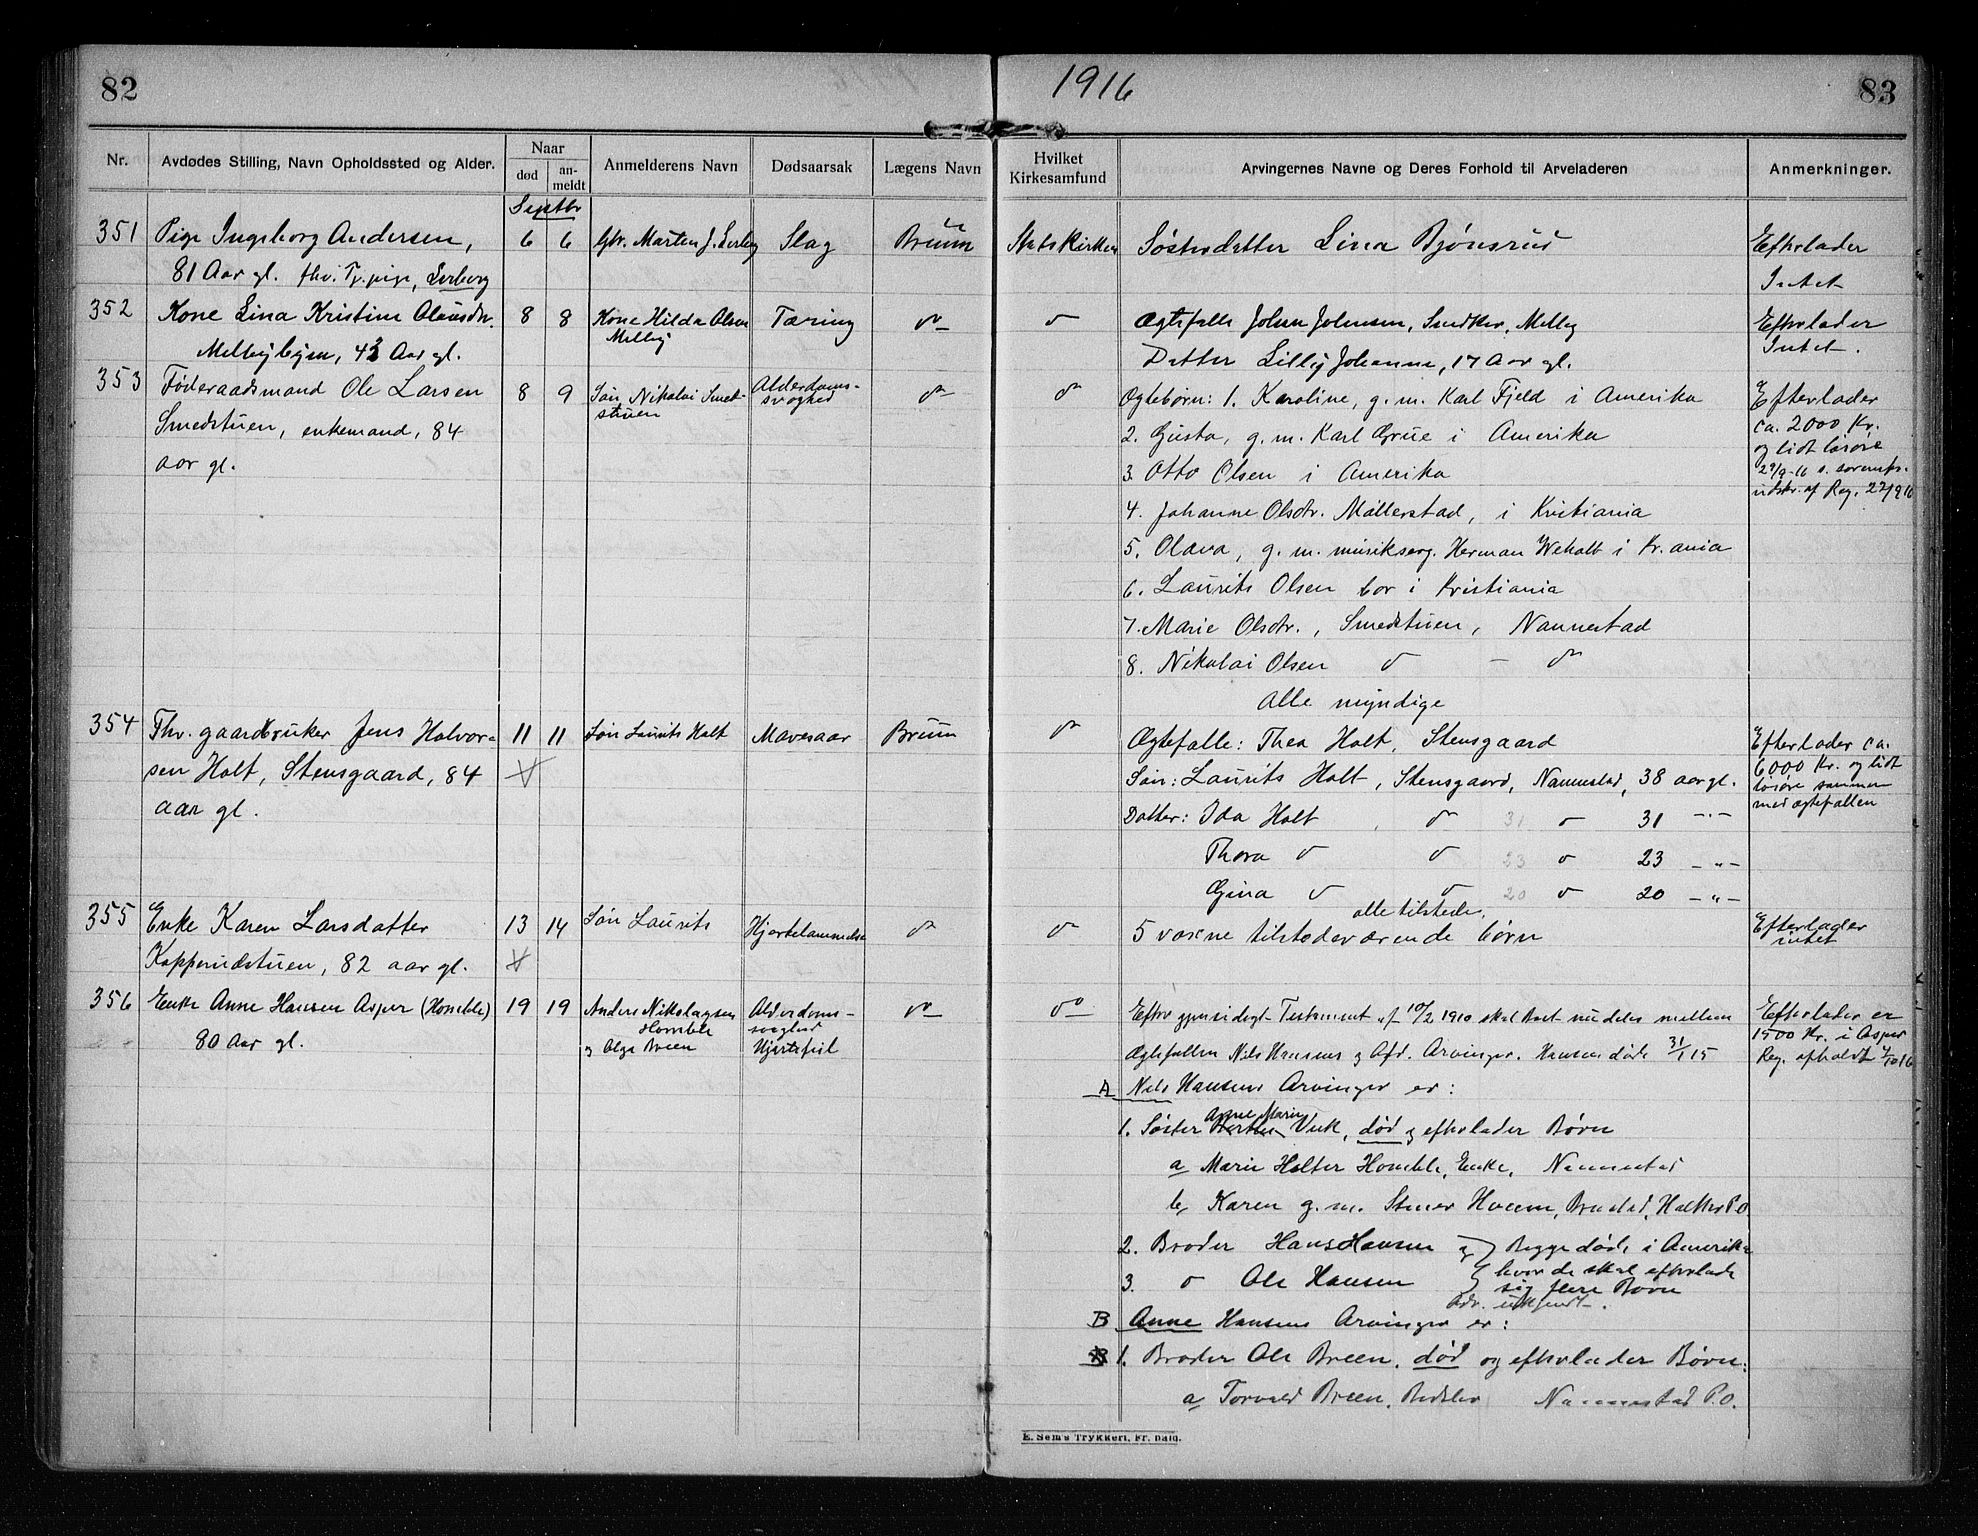 82
1916
83
Nr.
Avdødes Stilling, Navn Opholdssted og Alder.
Naar
død
an-
meldt
Anmelderens Navn
Dødsaarsak
Lægens Navn
Hvilket
Kirkesamfund
Arvingernes Navne og Deres Forhold til Arveladeren
Anmerkninger.
Septbr
351 Pige Ingeborg Andersen, 6 6 Gbr. Marten J. Slag Bruun Statskirken Søsterdatter Lina Bjønsrud Efterlader
81 Aar gl. fhv. Tj.pige, Intet
352 Kone Lina Kristine Olausdtr. 8 8 Kone Hilda Olsen Tæring do do Ægtefælle Johan Johnsen, Melby Efterlader
Melbybyen, 43 Aar gl. Melby Datter Lilly Johanne, 17 Aar gl. Intet.
353 Føderaadsmand Ole Larsen 8 9 Søn Nikolai Smed- Alderdoms- do do Ægtebørn: 1. Karoline, g.m. Karl Fjeld i Amerika Efterlader
stuen svaghed
Smedstuen, enkemand, 84 2. Gusta, g.m. Karl Grue i Amerika ca. 2000 Kr.
og lidt løsøre
aar gl. 3. Otto Olsen i Amerika 29/9-16 s.
4. Johanne Olsdtr. Møllerstad, i Kristiania udskr. af Reg. 27/9 16
5. Olava, g.m. musikserg. Herman Weholt i Kr.ania
6. Laurits Olsen bor i Kristiania
7. Marie Olsdtr., Smedstuen, Nannestad
8. Nikolai Olsen do - do
Alle myndige
354 Fhv. gaardbruker Jens Halvor- 11 11 Søn Laurits Holt Mavesaar Bruun do Ægtefælle: Thea Holt, Stensgaard Efterlader ca.
sen Holt, Stensgaard, 84 Søn: Laurits Holt, Stensgaard, Nannestad, 38 aar gl. 6000 Kr. og lidt
løsøre sammen
aar gl. Datter: Ida Holt do 31 do 31 -"- med ægtefællen
Thora do do 23 do 23 -"-
Gina do do 20 do 20 -"-
alle tilstede,
355 Enke Karen Larsdatter 13 14 Søn Laurits Hjertelammelse do do 5 voxne tilstedeværende børn Efterlader
intet
Koppernæstuen, 82 aar gl.
356 Enke Anne Hansen Asper (Homble) 19 19 Anders Nikolaysen Alderdoms- do do Efter gjensidigt Testament af 10/2 1910 skal Boet nu deles mellem Efterlader en
80 Aar gl. Homble svaghed 1900 Kr. i Asper
og Olga Breen Hjertefeil Ægtefællen Nils Hansens og Afd. Arvinger. Hansen døde 31/1 15 Reg. afholdt 4/10 16
A Nils Hansens Arvinger er:
Anne Marie
1. Søster Berthe Vik, død og efterlader Børn
a Marie Holter Homble, Enke, Nannestad
b, Karen g.m. Holter P.O
2. Broder Hans Hansen og Begge døde i Amerika
3. do Ole Hansen hvor de skal efterlade
sig flere Børn
Adr. ukjendt.
B Anne Hansens Arvinger er:
1. Broder Ole Breen, død og efterlader Børn:
a Torvald Breen, Nannestad P.O.
E. Sem's Trykkeri, Fr.hald.